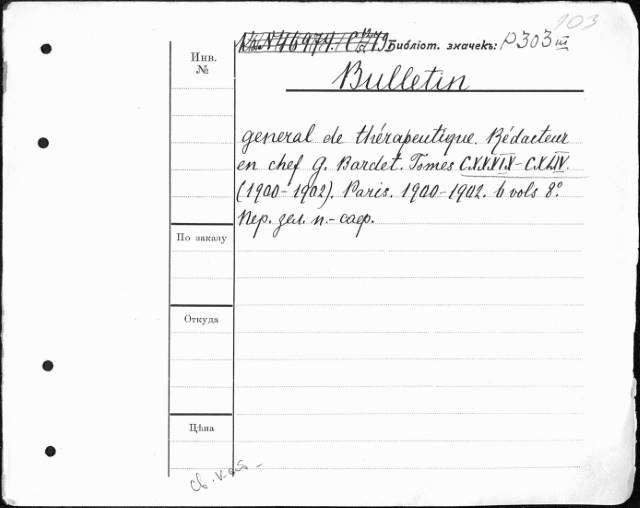 103
Библіот. значекъ: P303 III
Инв.
№
Bulletin
general de thérapeutique. Rédacteur
en chef G. Bardet. Tomes CXXXIX-CXLIV.
(1900-1902). Paris. 1900-1902. 6 vols 8°.
Пер. зел. п.-саф.
По заказу
Откуда
Цѣна